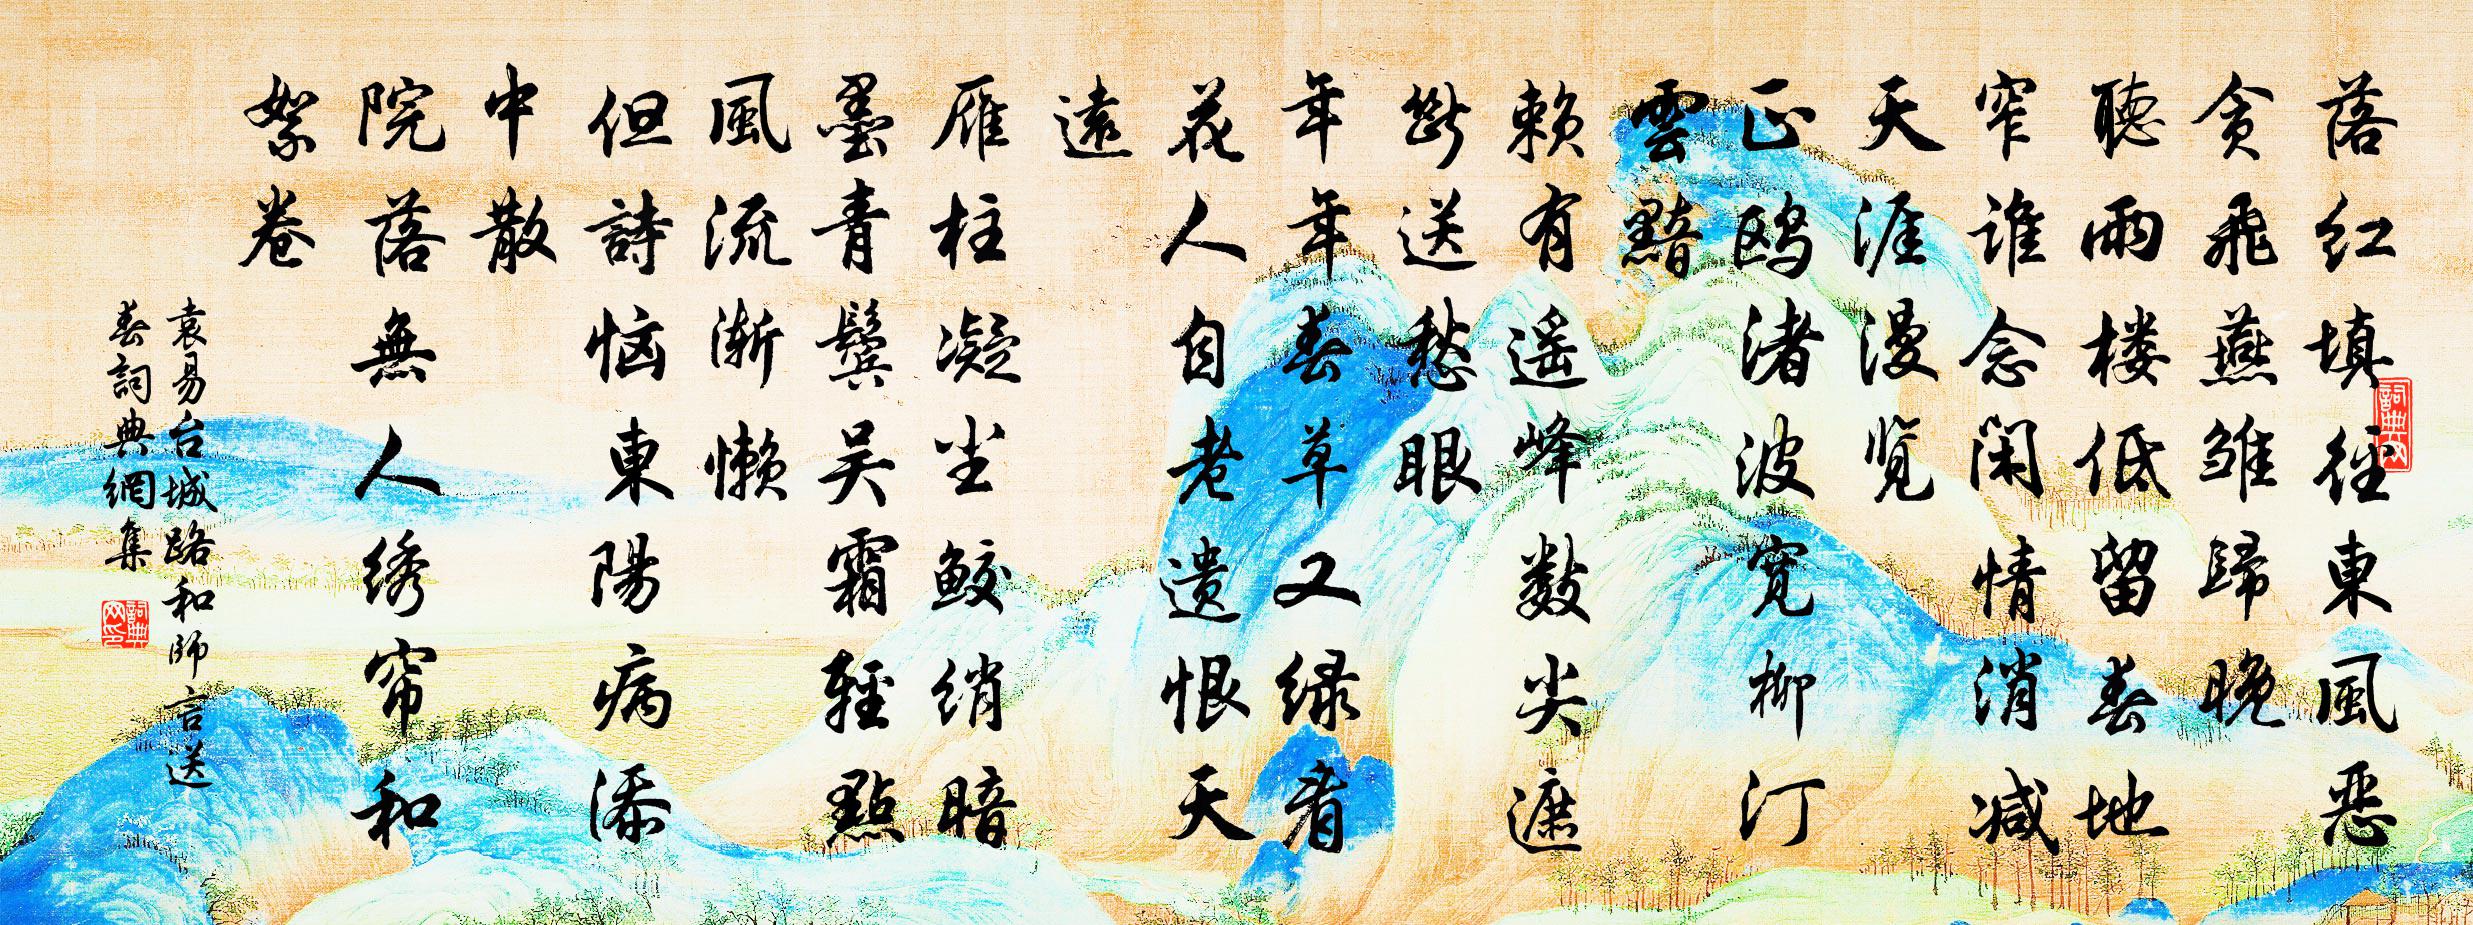 落红填径東風恶
贪飛燕雏歸晚
聽雨楼低留春地
窄谁念闲情消减
天涯漫览
正鸥渚波宽柳汀
雲黯
赖有遥峰数尖遮
断送愁眼
年年春草又绿看
花人自老遗恨天
遠
雁柱凝尘鲛绡暗
墨青鬓吴霜輕點
風流渐懒
但詩恼東陽病添
中散
院落無人绣帘和
絮卷
袁易台城路和師言送
春詞典網集
詞典网
詞典网印